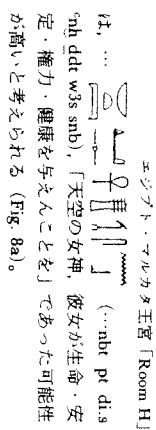 エジプト・マルカタ王宮「Room H」
は，… (…nbt pt di.s
ꜥnh ddt w3s snb),「天空の女神，彼女が生命・安
定・権力・健康を与えんことを」であった可能性
が高いと考えられる (Fig. 8a)。